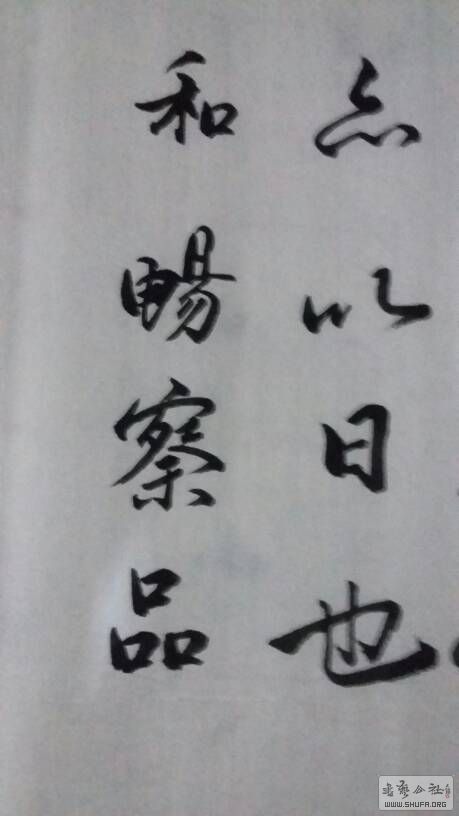 亦以日也
和暢察品
書藝公社
WWW.SHUFA.ORG